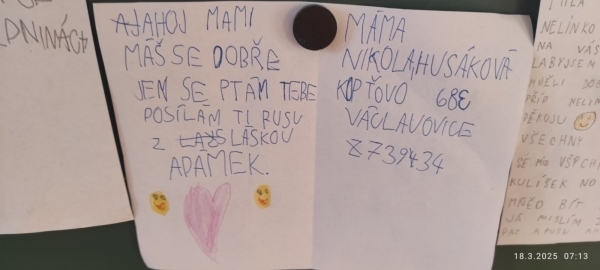 DNINÁCH
AHOJ MAMI
MÁŠ SE DOBŘE
JEM SE PTÁM TEBE
POSÍLÁM TI RUSU
Z LÁSKOU
ADÁMEK.
MÁMA
NIKOLAHUSÁKOVÁ
KOPŤOVO 68E
VÁCLAVOVICE
Z739434
NELINKO
NA VÁS
LABYJSEM
DĚKUJU
VŠECHNY
KULÍŠEK NO
BÍT
JÁ MISLÍM
18.3.2025 07:13